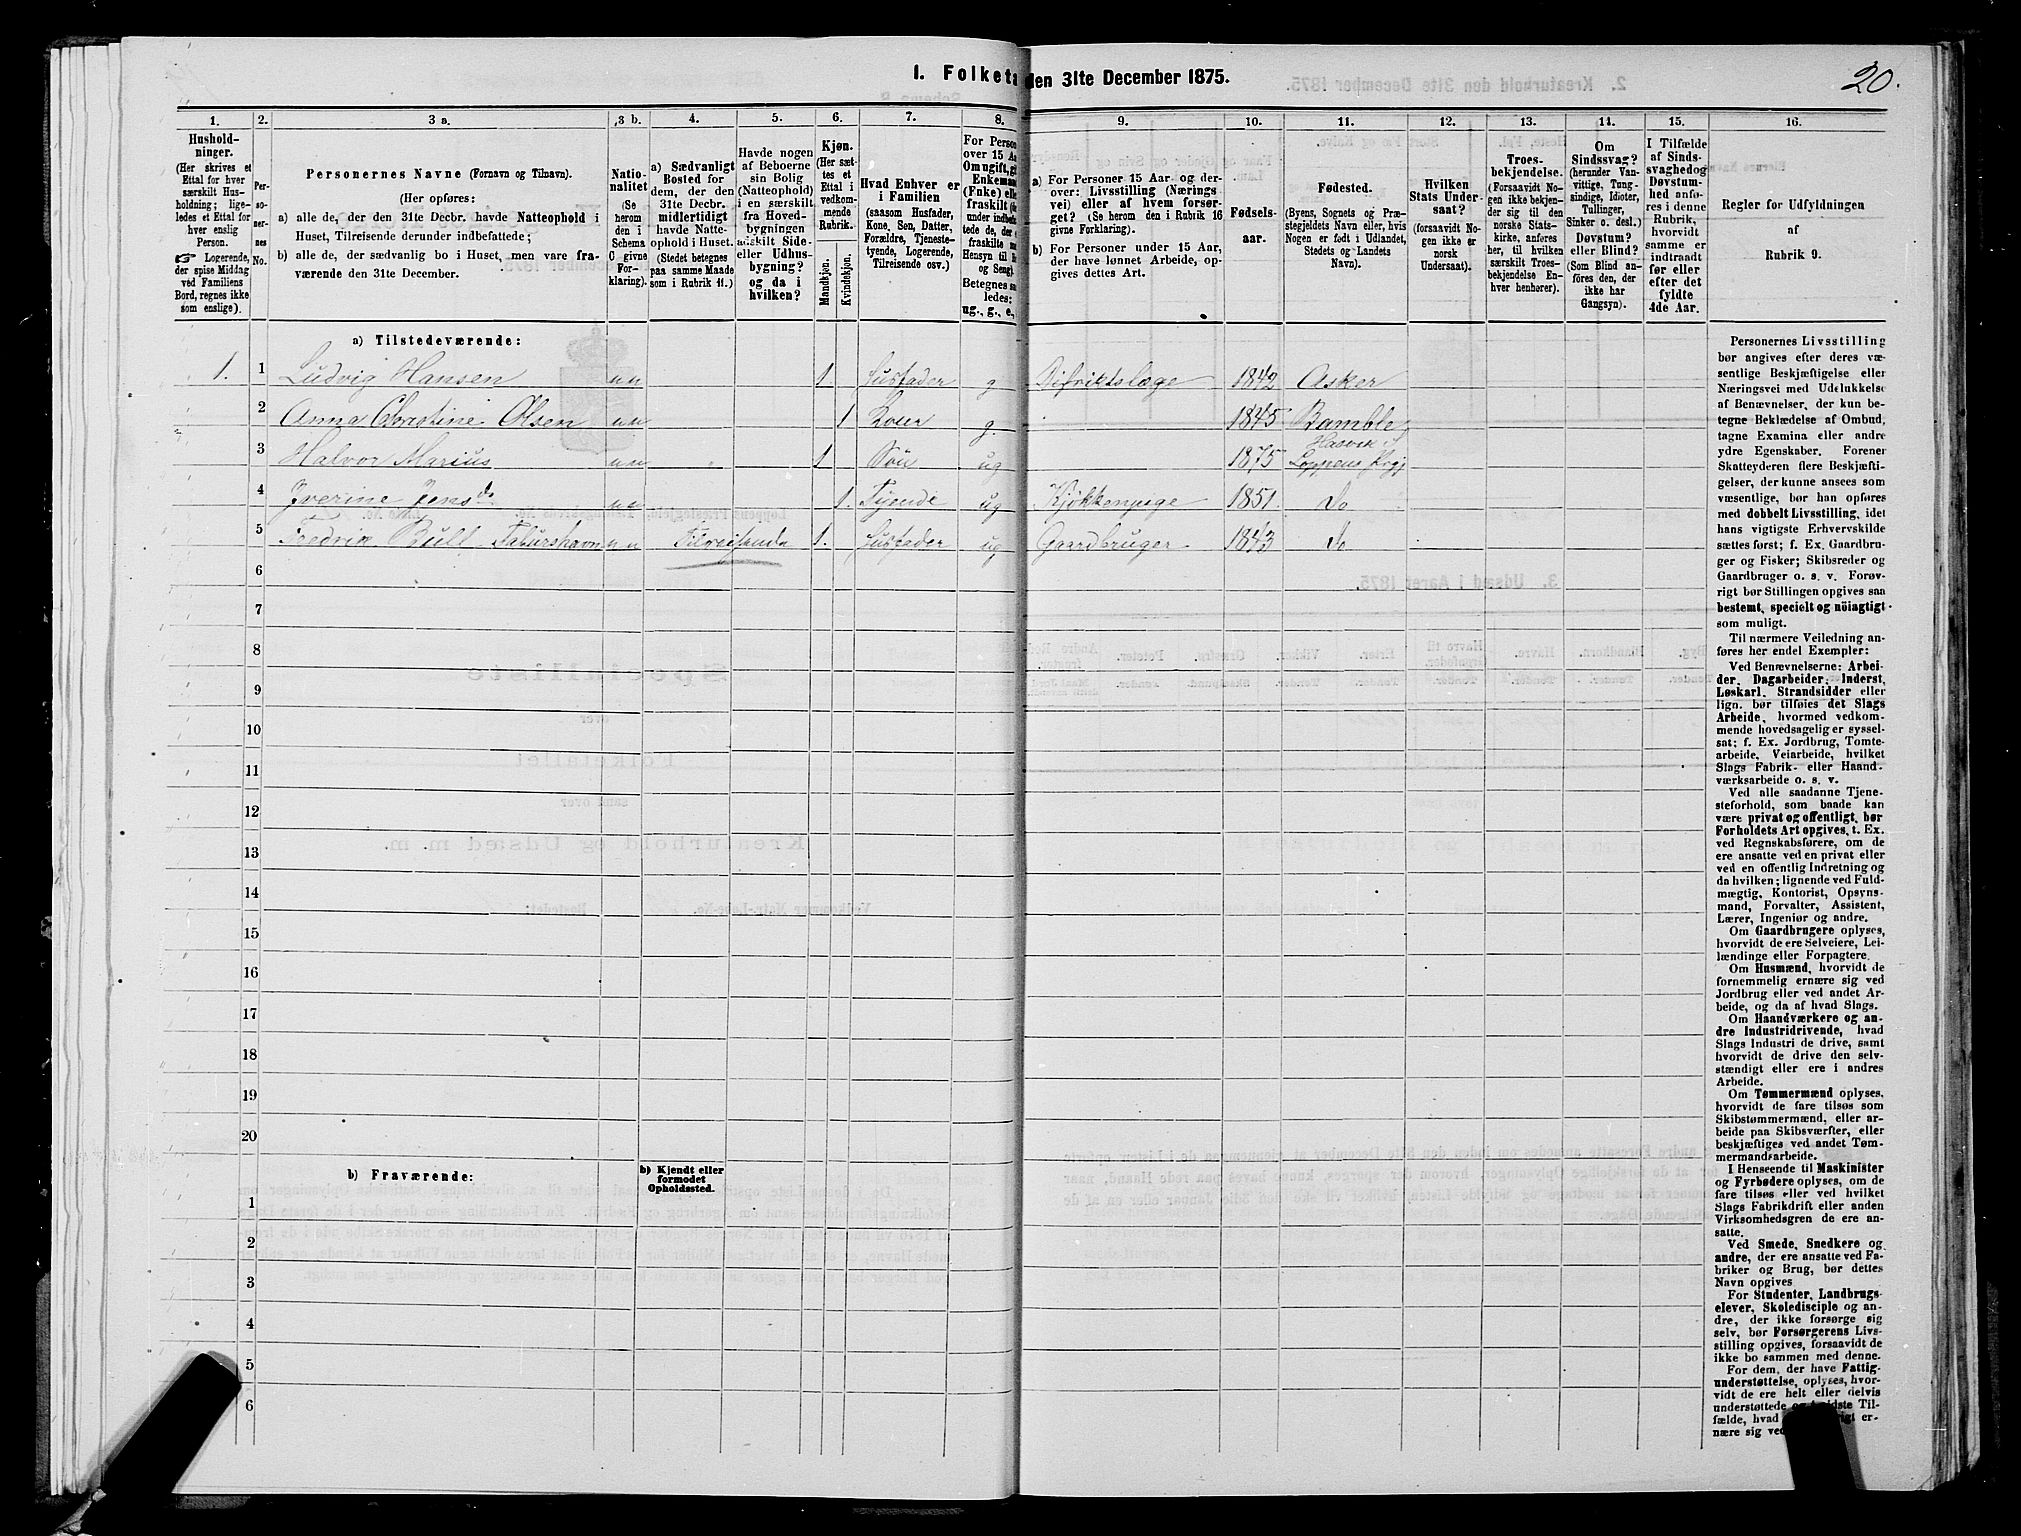 1. Folketa
den 31te December 1875.
20.
1. 2. 3 a. 3 b. 4. 5. 6. 7. 8. 9. 10. 11. 12. 13. 14. 15. 16.
Hushold-
ninger.
(Her skrives et
Ettal for hver
særskilt Hus-
holdning; lige-
ledes et Ettal for
hver enslig
Person.
☞ Logerende,
der spise Middag
ved Familiens
Bord, regnes ikke
som enslige).
Per-
so-
ner-
nes
No.
Personernes Navne (Fornavn og Tilnavn).
(Her opføres:
a) alle de, der den 31te Decbr. havde Natteophold i
Huset, Tilreisende derunder indbefattede;
b) alle de, der sædvanlig bo i Huset, men vare fra-
værende den 31te December.
Natio-
nalitet
(Se
herom
den i
Schema
C givne
For-
klaring).
a) Sædvanligt
Bosted for
dem, der den
31te Decbr.
midlertidigt
havde Natte-
ophold i Huset.
(Stedet betegnes
paa samme Maade
som i Rubrik 11.)
Havde nogen
af Beboerne
sin Bolig
(Natteophold)
i en særskilt
fra Hoved-
bygningen
adskilt Side-
eller Udhus-
bygning?
og da i
hvilken?
Kjøn.
(Her sæt-
tes et
Ettal i
vedkom-
mende
Rubrik.)
Mandkjøn.
Kvindekjøn.
Hvad Enhver er
i Familien
(saasom Husfader,
Kone, Søn, Datter,
Forældre, Tjeneste-
tyende, Logerende,
Tilreisende osv.)
For Person
over 15 Aa
Om ugift, g
Enkemand
(Enke) elle
fraskilt (
under indbe
tede de, de
fraskilte
Hensyn til
og Seng).
Betegnes
ledes:
ug., g., e.,
a) For Personer 15 Aar og der-
over: Livsstilling (Nærings-
vei) eller af hvem forsør-
get? (Se herom den i Rubrik 16
givne Forklaring).
b) For Personer under 15 Aar,
der have lønnet Arbeide, op-
gives dettes Art.
Fødsels-
aar.
Fødested.
(Byens, Sognets og Præ-
stegjeldets Navn eller, hvis
Nogen er født i Udlandet,
Stedets og Landets
Navn).
Hvilken
Stats Under-
saat?
(forsaavidt No-
gen ikke er
norsk
Undersaat).
Troes-
bekjendelse.
(Forsaavidt No-
gen ikke bekjen-
der sig til den
norske Stats-
kirke, anføres
her, til hvilken
særskilt Troes-
bekjendelse En-
hver henhører).
Om
Sindssvag?
(herunder Van-
vittige, Tung-
sindige, Idioter,
Tullinger,
Sinker o. desl.)
Døvstum?
eller Blind?
(Som Blind an-
føres den, der
ikke har
Gangsyn).
I Tilfælde
af Sinds-
svaghed og
Døvstum-
hed anfø-
res i denne
Rubrik,
hvorvidt
samme er
indtraadt
før eller
efter det
fyldte
4de Aar.
Regler for Udfyldningen
af
Rubrik 9.
a) Tilstedeværende:
1. 1 Ludvig Hansen nn 1 Husfader g Distriktslæge 1842 Asker
2 Anna Christine Olsen nn 1 Kone g. 1845 Bamble
3 Halvor Marius nn 1 Søn ug 1875 Hasvik i Loppens Prgj
4 Iverine Jensd. nn 1. Tyende ug Kjøkkenpige 1851. do
5 Fredrik Bull nn Tilreisende 1. Husfader ug Gaardbruger 1843 do
6
7
8
9
10
11
12
13
14
15
16
17
18
19
20
b) Fraværende:
b) Kjendt eller
formodet
Opholdssted.
1
2
3
4
5
6
Personernes Livsstilling
bør angives efter deres væ-
sentlige Beskjæftigelse eller
Næringsvei med Udelukkelse
af Benævnelser, der kun be-
tegne Beklædelse af Ombud,
tagne Examina eller andre
ydre Egenskaber. Forener
Skatteyderen flere Beskjæfti-
gelser, der kunne ansees som
væsentlige, bør han opføres
med dobbelt Livsstilling, idet
hans vigtigste Erhvervskilde
sættes først; f. Ex. Gaardbru-
ger og Fisker; Skibsreder og
Gaardbruger o. s. v. Forøv-
rigt bør Stillingen opgives saa
bestemt, specielt og nöiagtigt
som muligt.
Til nærmere Veiledning an-
føres her endel Exempler:
Ved Benævnelserne: Arbei-
der, Dagarbeider, Inderst,
Løskarl, Strandsidder eller
lign. bør tilføies det Slags
Arbeide, hvormed vedkom-
mende hovedsagelig er syssel-
sat; f. Ex. Jordbrug, Tomte-
arbeide, Veiarbeide, hvilket
Slags Fabrik- eller Haand-
værksarbeide o. s. v.
Ved alle saadanne Tjene-
steforhold, som baade kan
være privat og offentligt, bør
Forholdets Art opgives, t. Ex.
ved Regnskabsførere, om de
ere ansatte ved en privat eller
ved en offentlig Indretning og
da hvilken; lignende ved Fuld-
mægtig, Kontorist, Opsyns-
mand, Forvalter, Assistent,
Lærer, Ingeniør og andre.
Om Gaardbrugere oplyses,
hvorvidt de ere Selveiere, Lei-
lændinge eller Forpagtere.
Om Husmænd, hvorvidt de
fornemmelig ernære sig ved
Jordbrug eller ved andet Ar-
beide, og da af hvad Slags.
Om Haandværkere og an-
dre Industridrivende, hvad
Slags Industri de drive, samt
hvorvidt de drive den selv-
stændigt eller ere i andres
Arbeide.
Om Tømmermænd oplyses,
hvorvidt de fare tilsøs som
Skibstømmermænd, eller ar-
beide paa Skibsværfter, eller
beskjæftiges ved andet Tøm-
mermandsarbeide.
I Henseende til Maskinister
og Fyrbødere oplyses, om de
fare tilsøs eller ved hvilket
Slags Fabrikdrift eller anden
Virksomhedsgren de ere an-
satte.
Ved Smede, Snedkere og
andre, der ere ansatte ved Fa-
briker og Brug, bør dettes
Navn opgives
For Studenter, Landbrugs-
elever, Skoledisciple og an-
dre, der ikke forsørge sig
selv, bør Forsørgerens Livs-
stilling opgives, forsaavidt de
ikke bo sammen med denne.
For dem, der have Fattig-
understøttelse, oplyses, hvor-
vidt de ere helt eller delvis
understøttede Til-
fælde, hvad er-
nære sig ved